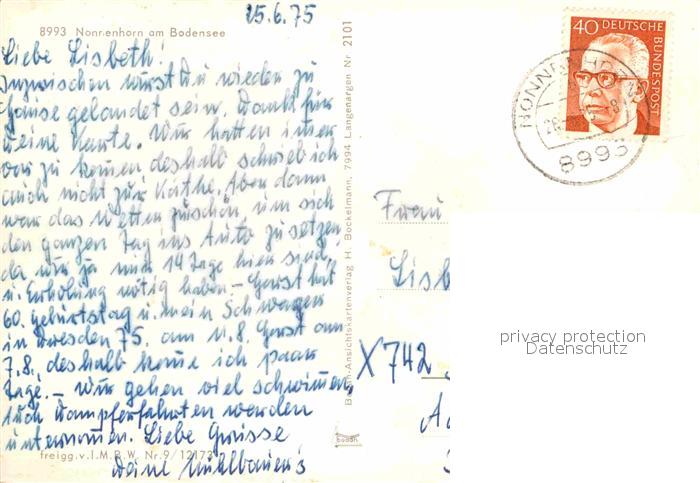 25.6.75
8993 Nonnenhorn am Bodensee
Liebe Lisbeth!
Inzwischen wirst Du wieder zu
Hause gelandet sein. Dankt für
Deine Karte. Wir hatten immer
vor zu komen deshalb schrieb ich
auch nicht zur Käthe. Aber dann
war das Wetter zu schön um sich
den ganzen Tag ins Auto zu setzen
da wir ja nur 14 Tage hier sind
u. Erholung nötig haben – Horst hat
60. Geburtstag u. mein Schwager
in Dresden 75. am 4.8. Horst am
7.8. deshalb kome ich paar
Tage. – Wir gehen viel schwimen,
Auch Dampferfahrten werden
unternomen. Liebe Grüsse
Deine Mühlbauer's
freigg.v.I.M.B.W. Nr.9/12173
Boden-Ansichtskartenverlag H. Bockelmann, 7994 Langenargen Nr 2101
40 DEUTSCHE
BUNDESPOST
NONNENHORN
8993
Frau
Lisb
X742
privacy protection
Datenschutz